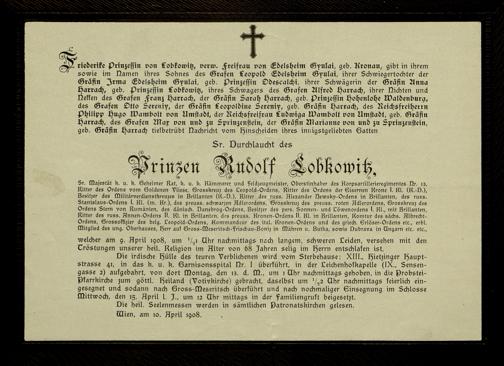 Friederike Prinzessin von Lobkowitz, verw. Freifrau von Edelsheim Gyulai, geb. Kronau, gibt in ihrem
sowie im Namen ihres Sohnes des Grafen Leopold Edelsheim Gyulai, ihrer Schwiegertochter der
Gräfin Irma Edelsheim Gyulai, geb. Prinzessin Odescalchi, ihrer Schwägerin der Gräfin Anna
Harrach, geb. Prinzessin Lobkowitz, ihres Schwagers des Grafen Alfred Harrach, ihrer Nichten und
Neffen des Grafen Franz Harrach, der Gräfin Sarah Harrach, geb. Prinzessin Hohenlohe Waldenburg,
des Grafen Otto Sereny, der Gräfin Leopoldine Sereny, geb. Gräfin Harrach, des Reichsfreiherrn
Philipp Hugo Wambolt von Umstadt, der Reichsfreifrau Ludwiga Wambolt von Umstadt, geb. Gräfin
Harrach, des Grafen Max von und zu Sprinzenstein, der Gräfin Marianne von und zu Sprinzenstein,
geb. Gräfin Harrach tiefbetrübt Nachricht vom Hinscheiden ihres innigstgeliebten Gatten
Sr. Durchlaucht des
Prinzen Rudolf Lobkowitz,
Sr. Majestät k. u. k. Geheimer Rat, k. u. k. Kämmerer und Feldzeugmeister, Oberstinhaber des Korpsartillerieregimentes Nr. 13,
Ritter des Ordens vom Goldenen Vliese, Grosskreuz des Leopold-Ordens, Ritter des Ordens der Eisernen Krone I. Kl. (K.-D.),
Besitzer des Militärverdienstkreuzes in Brillanten (K.-D.), Ritter des russ. Alexander Newsky-Ordens in Brillanten, des russ.
Stanislaus-Ordens I. Kl. des preuss. schwarzen Adlerordens, Grosskreuz des preuss. roten Adlerordens, Grosskreuz des
Ordens Stern von Rumänien, des dänisch. Danebrog-Ordens, Besitzer des pers. Sonnen- und Löwenordens I. Kl. mit Brillanten,
Ritter des russ. Annen-Ordens II. Kl. in Brillanten, des preuss. Kronen-Ordens II. Kl. in Brillanten, Komtur des sächs. Albrecht-
Ordens, Grossoffizier des belg. Leopold-Ordens, Kommandeur des ital. Kronen-Ordens und des griech. Erlöser-Ordens etc., erbl.
Mitglied des ung. Oberhauses, Herr auf Gross-Meseritsch-Frischau-Bory in Mähren etc. etc.,
welcher am 9. April 1908, um Uhr nachmittags nach langem, schweren Leiden, versehen mit den
Tröstungen unserer heil. Religion im Alter von 68 Jahren selig im Herrn entschlafen ist.
Die irdische Hülle des teuren Verblichenen wird vom Sterbehause: XIII., Hietzinger Haupt-
strasse 41, in das k. u. k. Garnisonsspital Nr. I überführt, in der Leichenhofkapelle (IX., Sensen-
gasse 2) aufgebahrt, von dort Montag, den 13. d. M., um 1 Uhr nachmittags gehoben, in die Propstei-
Pfarrkirche zum göttl. Heiland (Votivkirche) gebracht, daselbst um Uhr nachmittags feierlich ein-
gesegnet und sodann nach Gross-Meseritsch überführt und nach nochmaliger Einsegnung im Schlosse
Mittwoch, den 15. April l. J., um 12 Uhr mittags in der Familiengruft beigesetzt.
Die heil. Seelenmessen werden in sämtlichen Patronatskirchen gelesen.
Wien, am 10. April 1908.